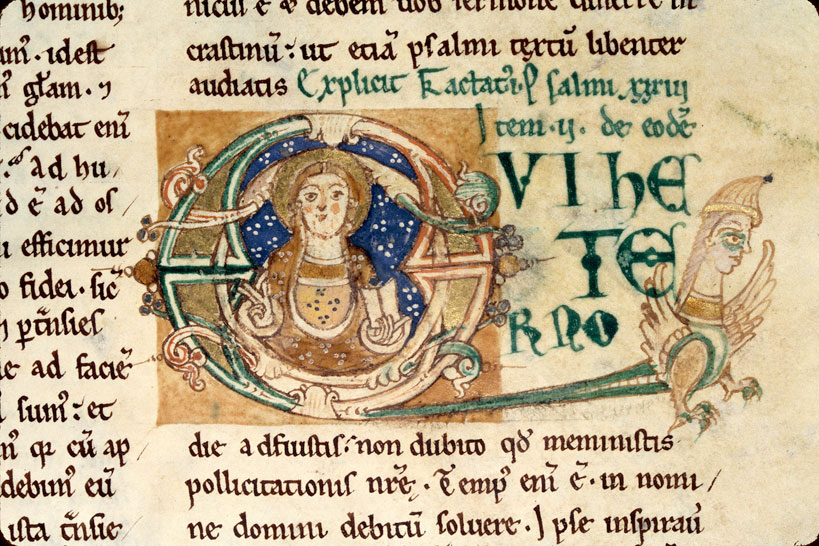 hominib;
um̅. idest
gl̅am. ⁊
cidebat eni̅
Ad hu
d e̅ ad os
efficimur
fidei. sic̅
ad facie̅
sum:̅ et
m̅ qr cu̅ ap
debim᷒ eu̅
ista
niciu e̅ debem᷒ uob sermone differre in
crastinu̅: ut etia̅ psalmi textu̅ libenter
audiatis Explicit Tractat᷒.I. Psalmi xxxiii
Item .ii. de eode̅
QVI hE
TE
RNO
die adfuistis: non dubito qđ meministis
pollicitationis nr̅ę. Temp᷒ eni̅ e̅. in nomi
ne domini debitu̅ soluere. Ipse inspirau̅